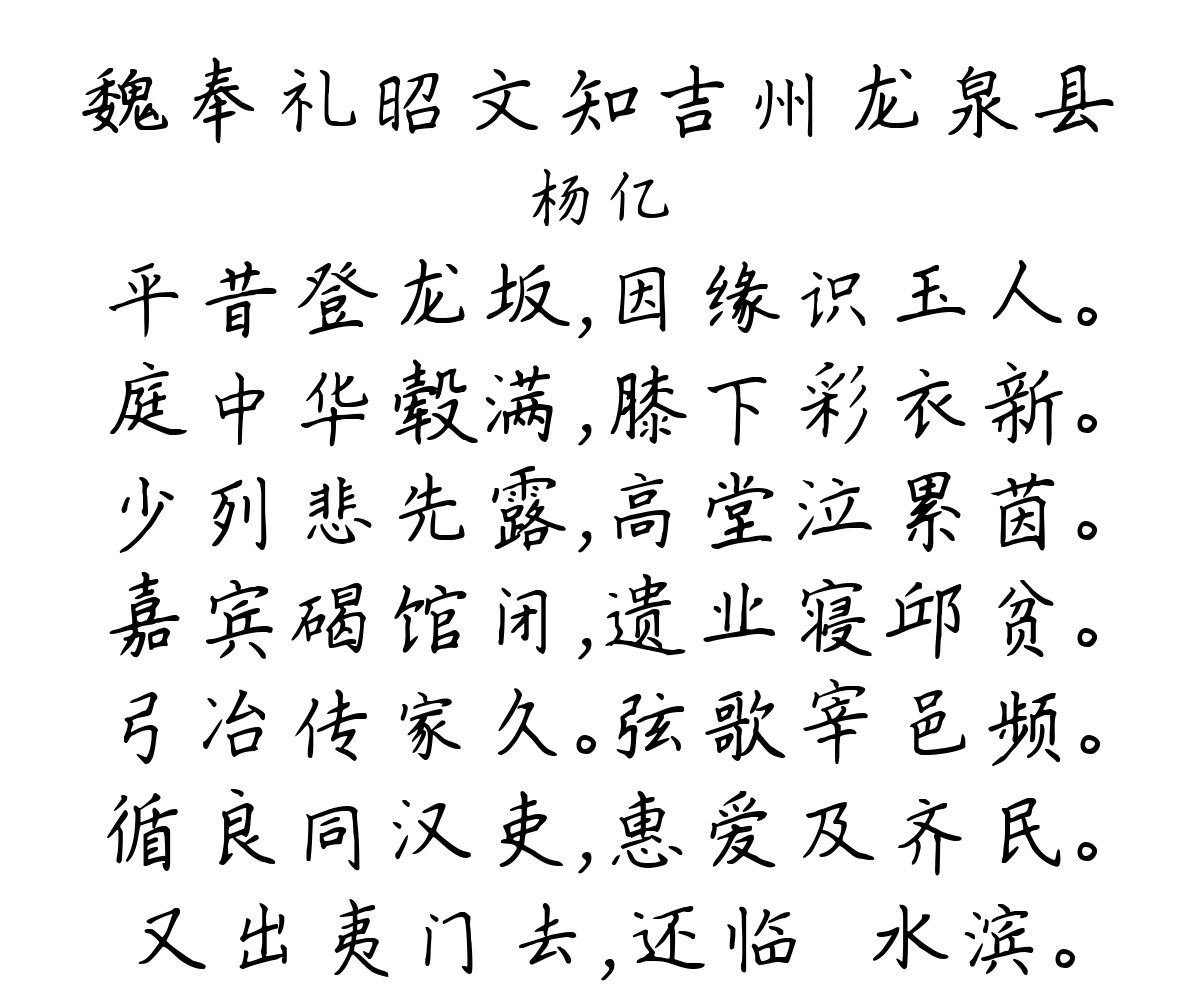 魏奉礼昭文知吉州龙泉县
杨亿
平昔登龙坂,因缘识玉人。
庭中华毂满,膝下彩衣新。
少列悲先露,高堂泣累茵。
嘉宾碣馆闭,遗业寝邱贫。
弓冶传家久。弦歌宰邑频。
循良同汉吏,惠爱及齐民。
又出夷门去,还临 水滨。